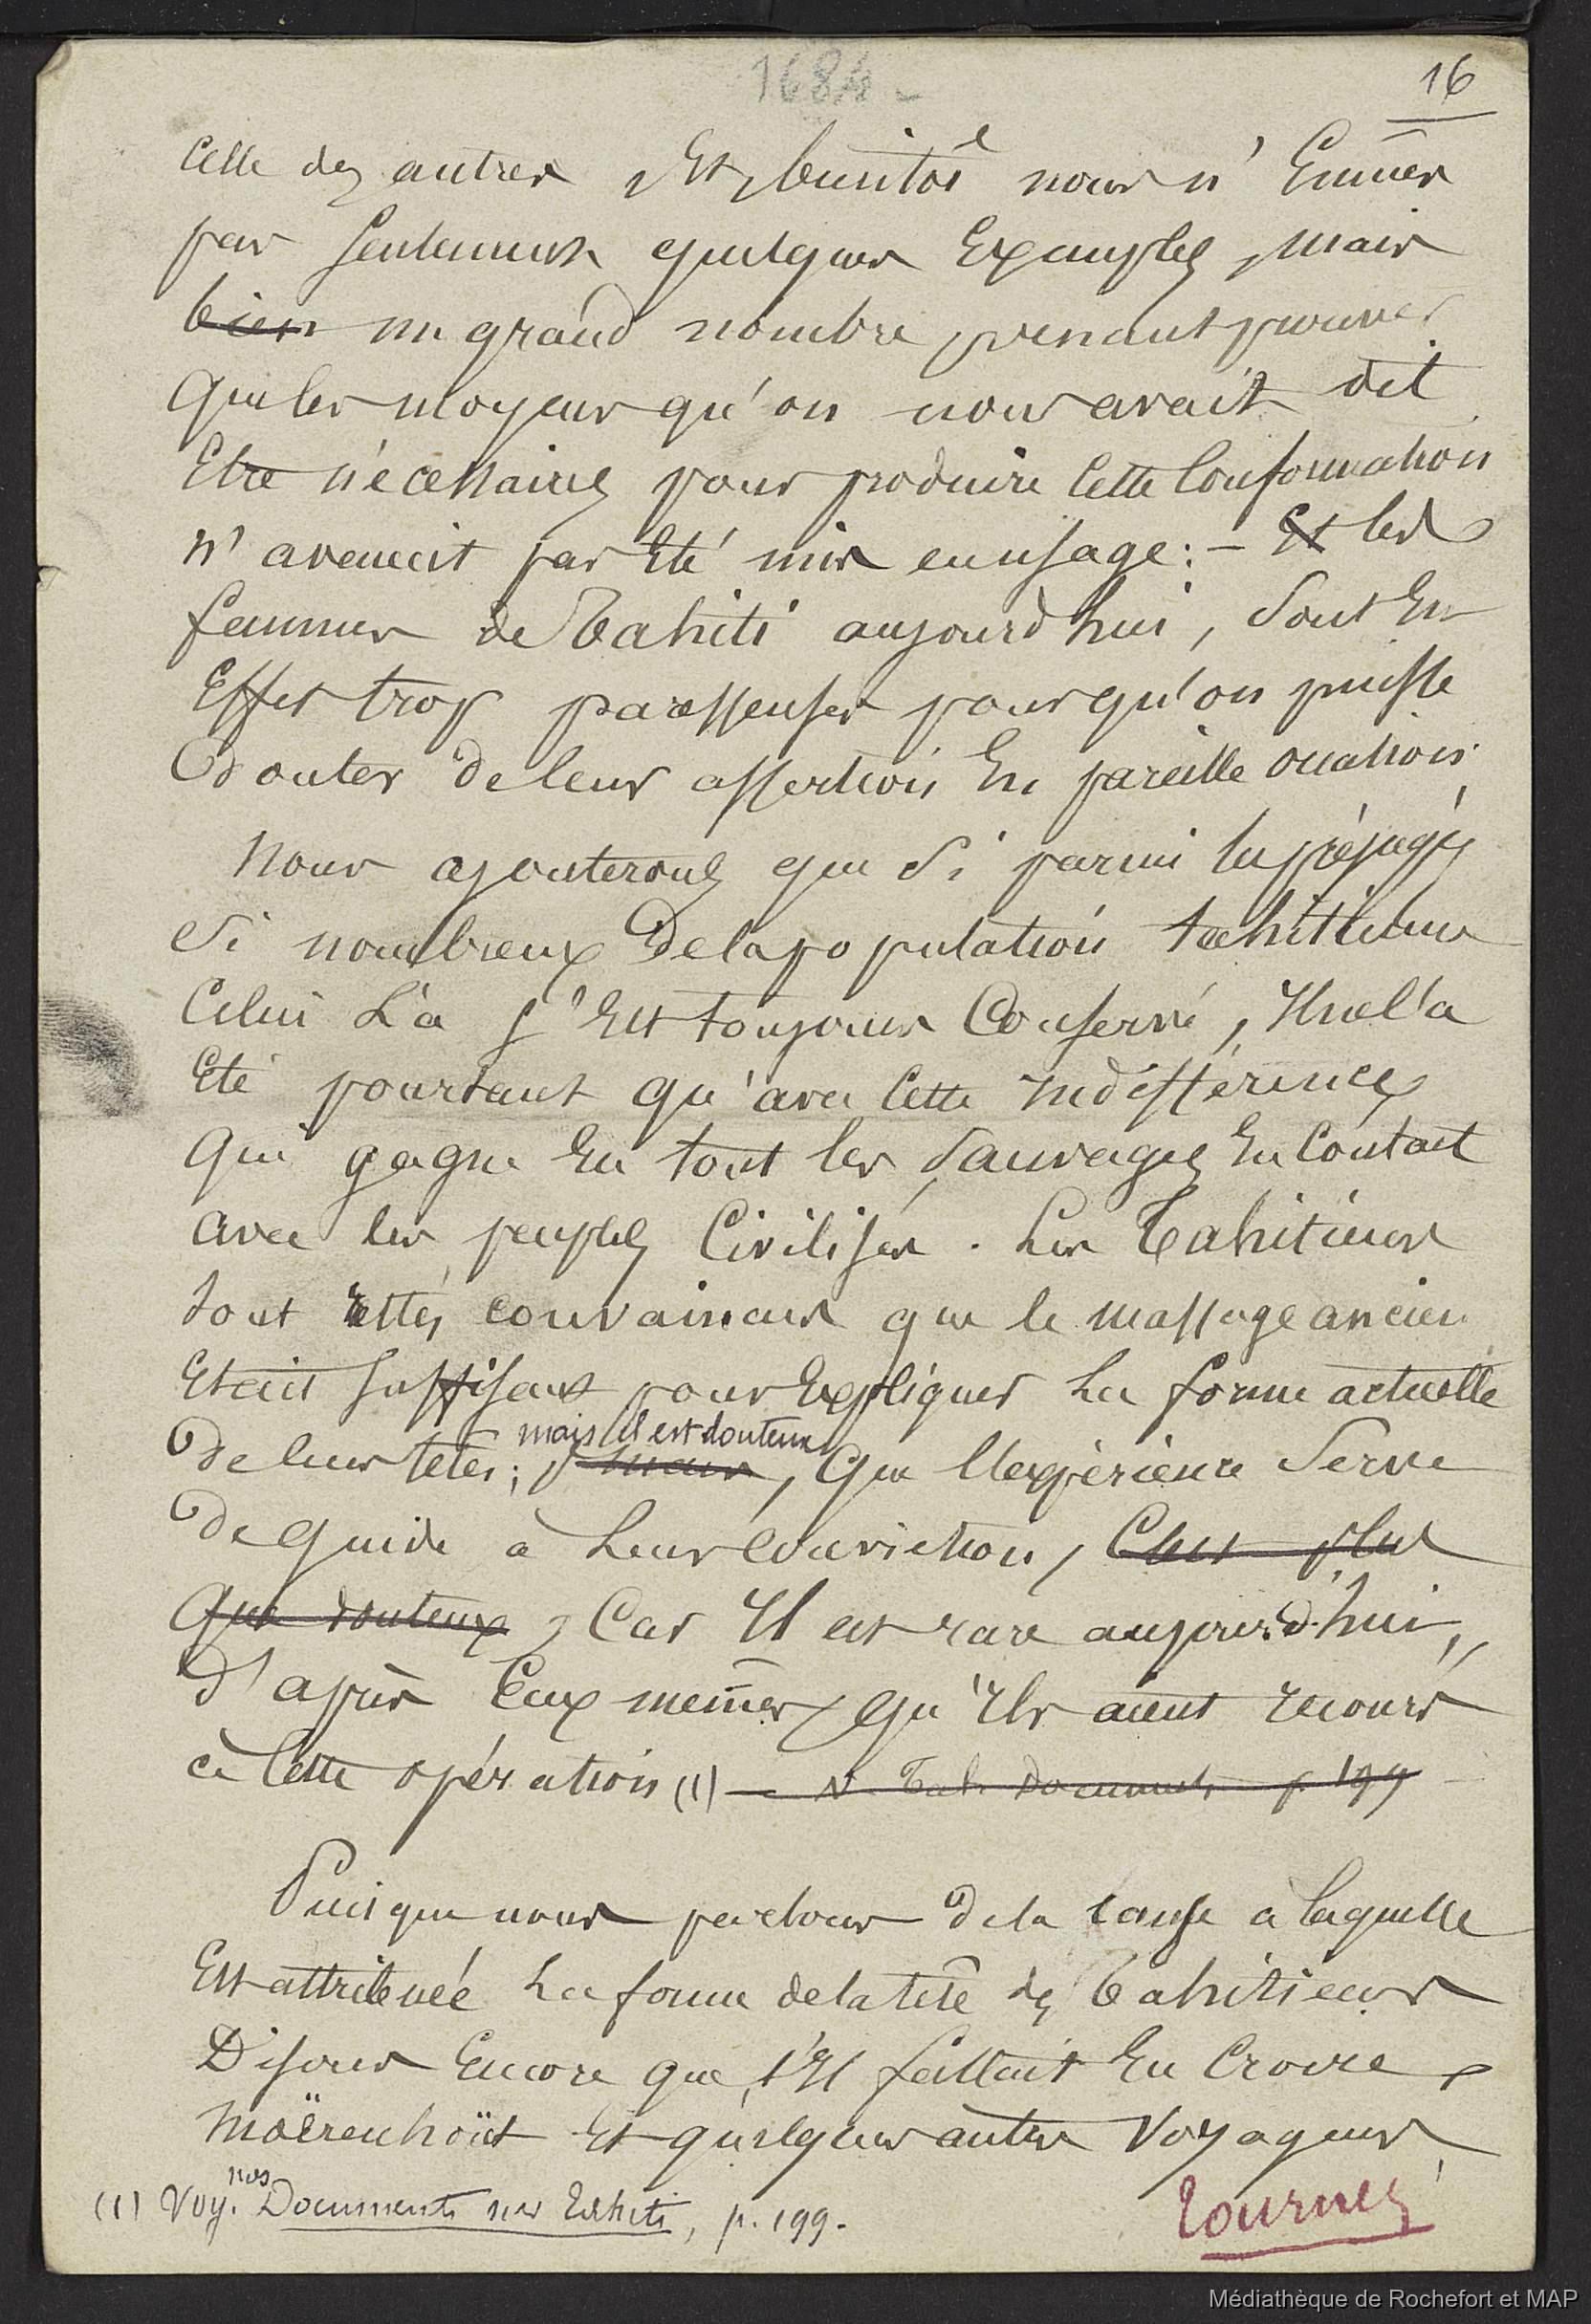 1684 -
16
Celle des autres, Et, bientôt nous n'Eûmes
pas Seulement quelques Exemples, mais
bien un grand nombre, venant prouver
Que les moyens qu'on nous avait dit
Etre nécessaires pour produire Cette Conformation
n'avaient pas Eté mis en usage : - Et les
femmes de Tahiti aujourd'hui, Sont En
Effet trop paresseuses pour qu'on puisse
Douter de leur assertion En pareille
Nous ajouterons que Si parmi les préjugés
Si nombreux De la population tahitienne
Celui Là s'Est toujours Conservé, Il ne l'a
Eté pourtant qu'avec Cette indifférence
Qui gagne En tout les Sauvages En Contact
avec les peuples Civilisés. Les Tahitiens
Sont restés convaincus que le massage ancien
Etait Suffisant pour Expliquer La forme actuelle
mais il est douteux
De leurs têtes ; mais, Que l'expérience Serve
De Guide à Leur Conviction, C'est plus
Que douteux, Car Il est rare aujourd'hui,
D'après Eux mêmes, Qu'Ils aient recours
à Cette opération (1) — V. Tah. Documents p. 199
Puisque nous parlons De la Cause à laquelle
Est attribuée La forme de la tête des Tahitiens
Disons Encore que, s'Il fallait En Croire,
Moërenhoüt Et quelques autres Voyageurs,
nos
(1) Voy. Documents sur Tahiti, p. 199.
tournez
Médiathèque de Rochefort et MAP